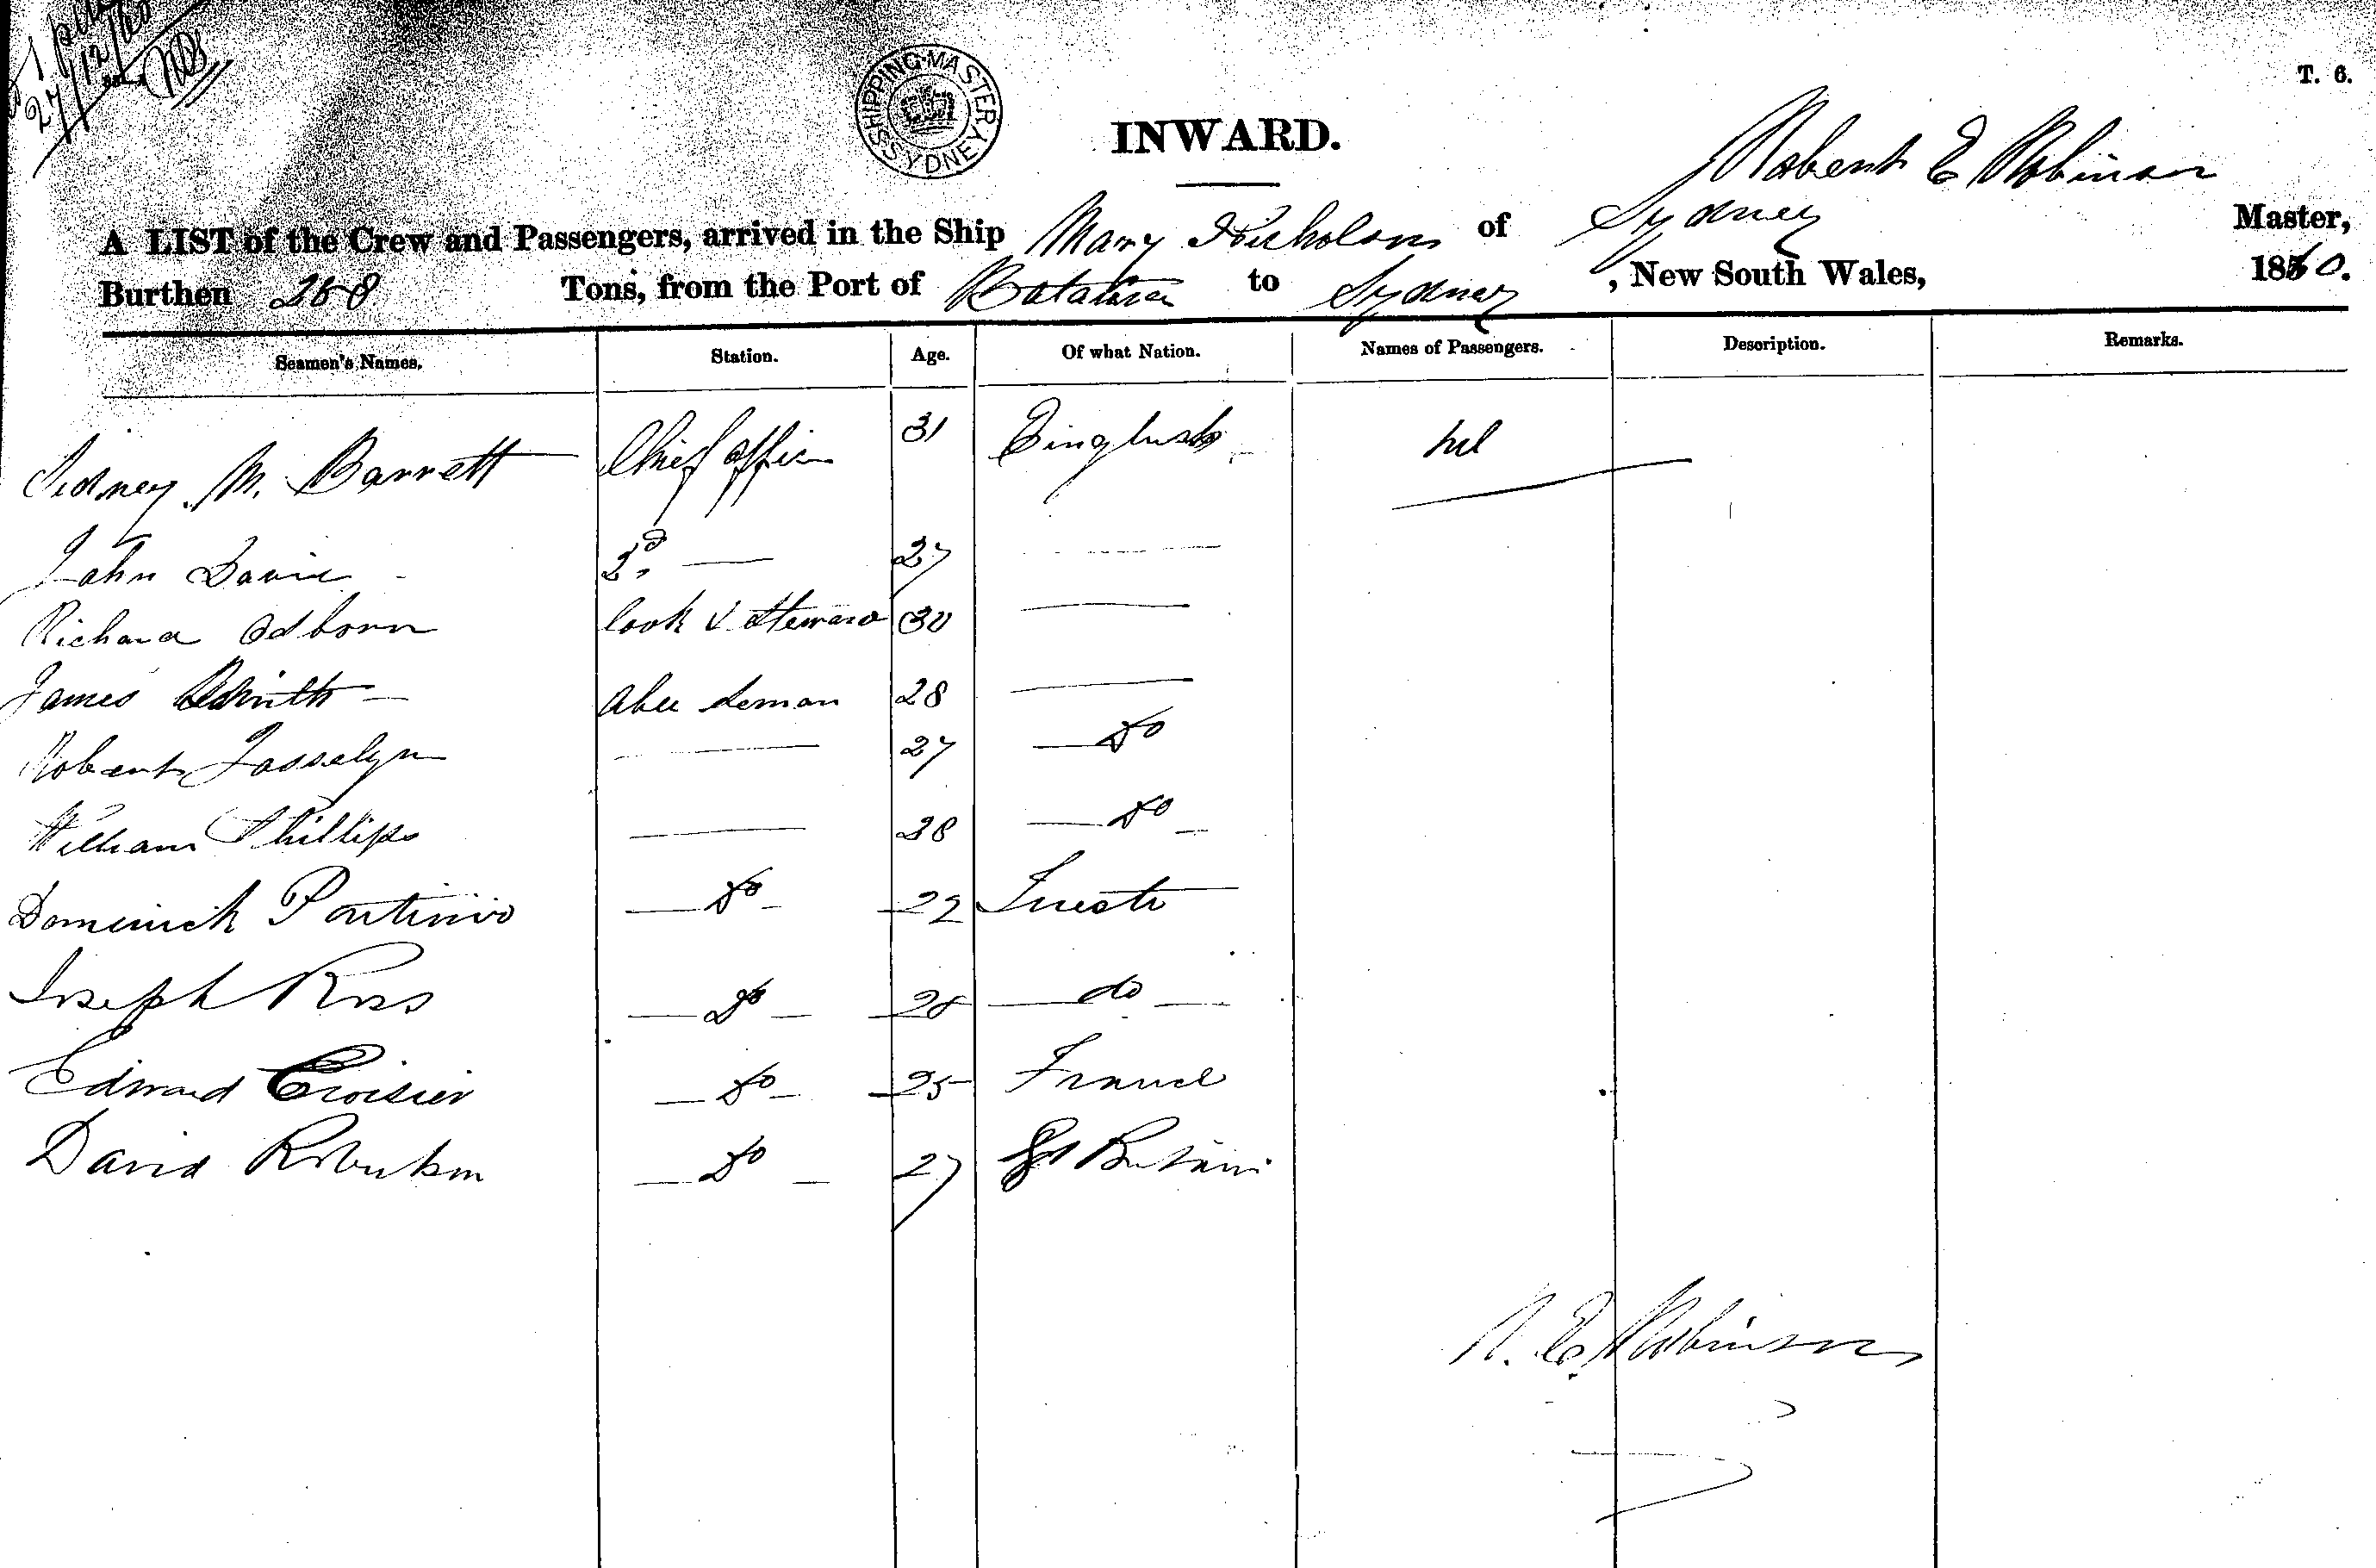 27/12/60
SHIPPING MASTER SYDNEY
T. 6.
INWARD.
Robert E Robinson
A LIST of the Crew and Passengers, arrived in the Ship Mary Nicholson of Sydney Master,
Burthen Tons, from the Port of Batavia to Sydney, New South Wales, 1860.
Seamen's Names. Station. Age. Of what Nation. Names of Passengers. Description. Remarks.
Sidney M. Barrett Chief Offic 31 English nil
John Davie 2d. — 27 —
Richard Osborn Cook & Steward 30 —
James Smith — Able Seman 28 —
Robert Josselyn — 27 — Do
William Phillips — 28 — Do —
Domenick — Do — 22 Trieste
Joseph Ross — Do — 28 — do —
Edward Croisier — Do — 25 France
David Robertson — Do — 27 Gt Britain
R. E. Robinson